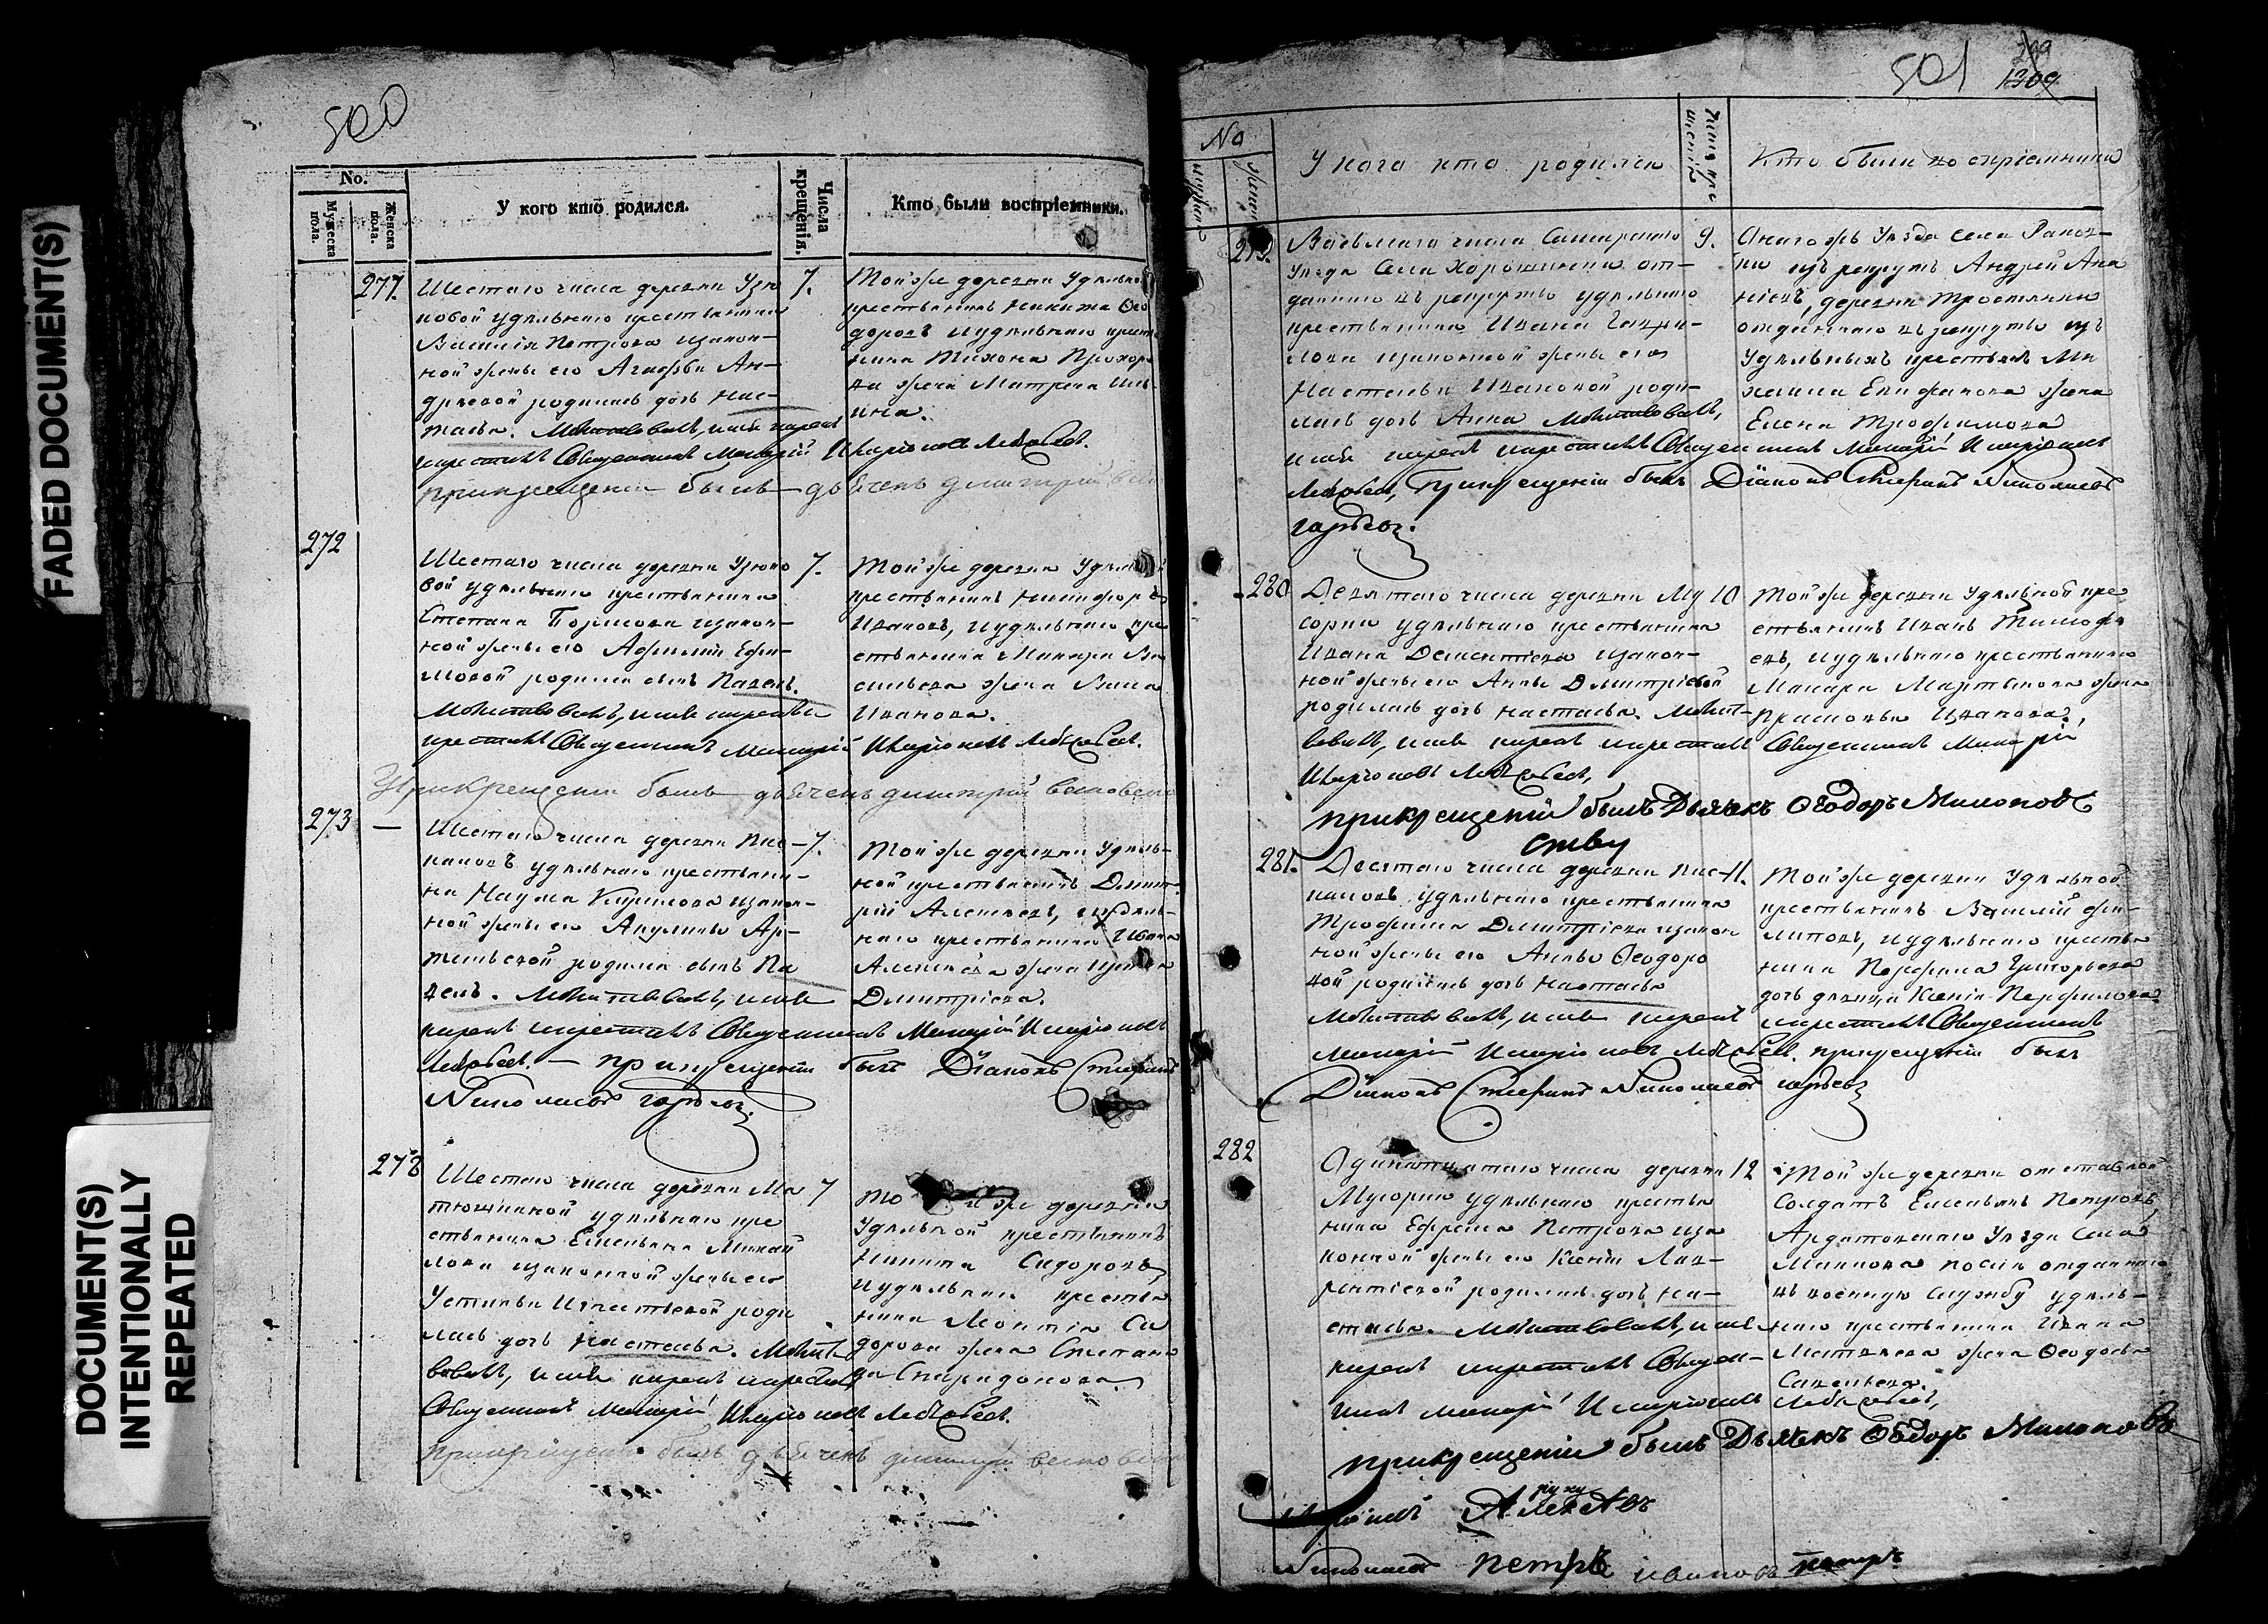 FADED DOCUMENT(S)
DOCUMENT(S)
INTENTIONALLY
REPEATED
500
No.
Мужеска пола.
Женска пола.
У кого кто родился.
Числа крещенія.
Кто были воспріемники.
277.
Шестаго числа деревни Узю
ковой удѣльнаго крестьянина
Василія Петрова закон-
ной жены его Агафьи Ан-
дреевой родилась дочь Нас-
тасья. Молитвовалъ, имя нарекъ
и крестилъ Священникъ Макарій Иларіоновъ Лебедевъ.
при крещеніи былъ дьячекъ Димитрій
7.
Той же деревни Удѣльной
крестьянинъ Никита Ѳео
доровъ и удѣльнаго крестья
нина Тихона Прохоро
ва жена Матрена Иль
ина.
272
Шестаго числа деревни Узюко
вой удѣльнаго крестьянина
Степана Борисова закон-
ной жены его Афиміи Ефи-
мовой родился сынъ Павелъ.
Молитвовалъ, имя нарекъ и
крестилъ Священникъ Макарій Иларіоновъ Лебедевъ.
При крещеніи былъ дьячекъ Димитрій
7.
Той же деревни Удѣльной
крестьянинъ Никифоръ
Ивановъ, и удѣльнаго кре
стьянина Макара Ва
сильева жена Васса
Иванова.
273
Шестаго числа деревни Пис-
каловъ удѣльнаго крестьяни-
на Наума Кирилова закон-
ной жены его Акулины Ар-
темьевой родился сынъ Па
велъ. Молитвовалъ, имя
нарекъ и крестилъ Священникъ Макарій Иларіоновъ
Лебедевъ. — при крещеніи былъ Діаконъ Стефанъ
Николаевъ
7.
Той же деревни Удѣль-
ной крестьянинъ Димит-
рій Алексеевъ, и удѣль-
наго крестьянина Ивана
Алексеева жена Ирина
Димитріева.
278
Шестаго числа деревни Ма
тюшкиной удѣльнаго кре
стьянина Емельяна Михай
лова законной жены его
Устиньи Игнатьевой роди
лась дочь Настасья. Молит-
вовалъ, имя нарекъ и крестилъ
Священникъ Макарій Иларіоновъ Лебедевъ.
при крещеніи былъ дьячекъ Димитрій
7
Той же деревни
Удѣльной крестьянинъ
Никита Сидоровъ,
и удѣльнаго крестья
нина Леонтія Си
дорова жена Степани
да Спиридонова.
501
1309
No
У кого кто родился
Числа кре
щенія
Кто были воспріемники
279.
Восьмаго числа Самарскаго
Уѣзда Села Хорошенька от-
даннаго въ рекруты удѣльнаго
крестьянина Ивана Гаври-
лова законной жены его
Настасьи Ивановой роди-
лась дочь Анна Молитвовалъ,
имя нарекъ и крестилъ Священникъ Макарій Иларіоновъ
Лебедевъ, При крещеніи былъ Діаконъ Стефанъ Николаевъ
9.
Онаго жъ Уѣзда Села
изъ рекрутъ Андрей Ана
ніевъ, деревни Тростянки
отданнаго въ рекруты изъ
Удѣльныхъ крестьянъ Ми
хаила Епифанова жена
Елена Трофимова
280
Девятаго числа деревни Му
сорки удѣльнаго крестьянина
Ивана Дементіева закон-
ной жены его Анны Димитріевой
родилась дочь Настасья. Молит-
вовалъ, имя нарекъ и крестилъ Священникъ Макарій
Иларіоновъ Лебедевъ,
при крещеніи былъ Дьячекъ Ѳеодоръ Милоновъ
10
Той же деревни Удѣльной кре
стьянинъ Иванъ Тимофе
евъ, и удѣльнаго крестьянина
Макара Мартынова жена
Прасковья Иванова.
281.
Десятаго числа деревни Пис-
каловъ удѣльнаго крестьянина
Трофима Димитріева закон
ной жены его Анны Ѳеодоро
вой родилась дочь Настасья
Молитвовалъ, имя нарекъ и крестилъ Священникъ
Макарій Иларіоновъ Лебедевъ. при крещеніи былъ
Діаконъ Стефанъ Николаевъ
11.
Той же деревни Удѣльной
крестьянинъ Василій Фи-
липовъ, и удѣльнаго крестья
нина Перфила Григорьева
дочь дѣвица Ксенія Перфилова
282
Одинатцатаго числа деревни
Мусорки удѣльнаго крестья
нина Ефрема Петрова за
конной жены его Ксеніи Лав-
рентіевой родилась дочь На-
стасья. Молитвовалъ, имя
нарекъ и крестилъ Священ-
никъ Макарій Иларіоновъ Лебедевъ,
при крещеніи былъ Дьячекъ Ѳеодоръ Милоновъ
12
Той же деревни отставной
Солдатъ Емельянъ Петровъ,
Ардатовскаго Уѣзда Села
отданнаго
въ военную службу удѣль-
наго крестьянина Ивана
жена Ѳеодосья
Савельева.
руку
Николаевъ Петръ Ивановъ